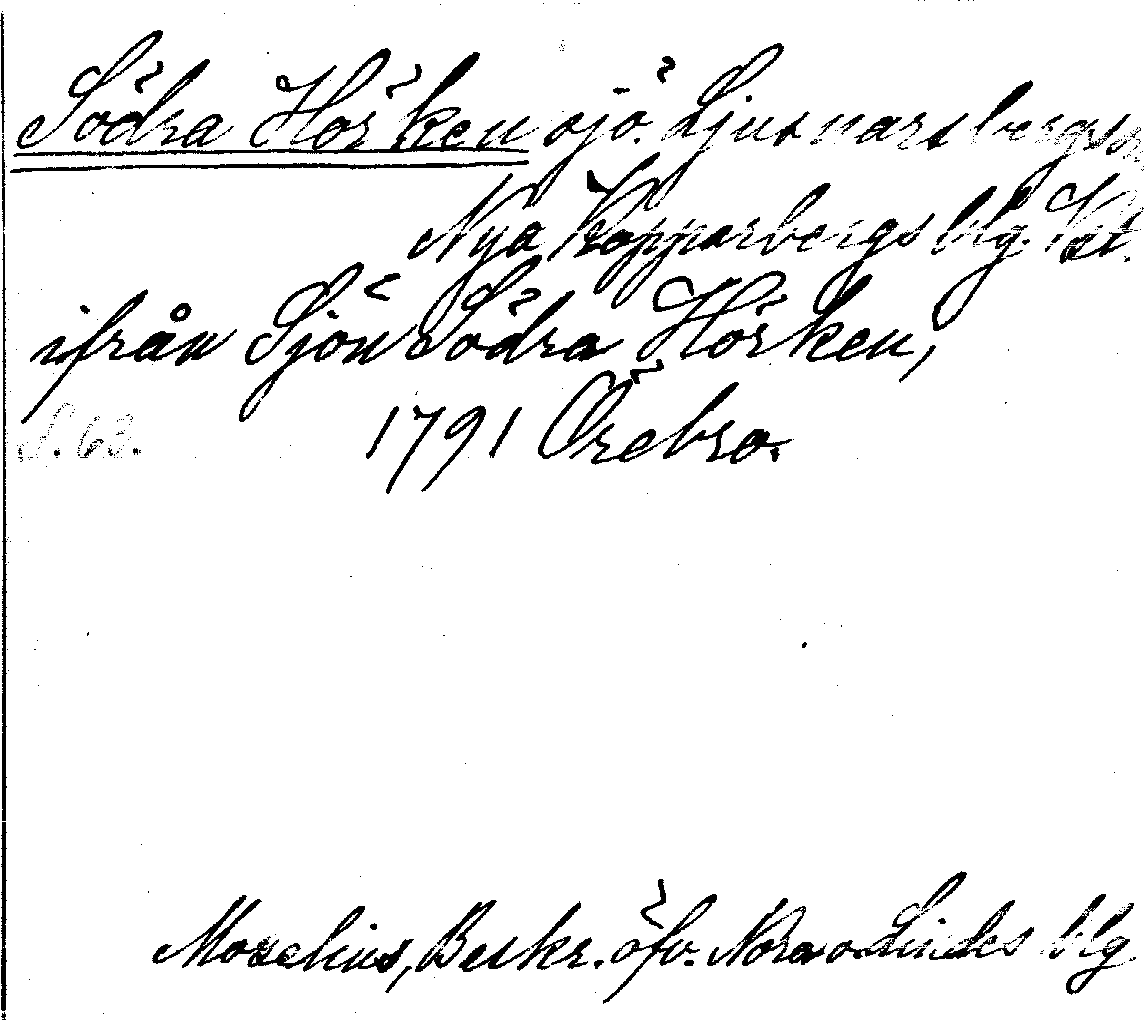 Södra Hörken sjö. Ljusnarsbergssn,
Nya Kopparbergs blg. Vstl.
ifrån Sjön Södra Hörken,
S. 63. 1791 Örebro.
Moselius, Beskr. öfv. Nora o. Lindes blg